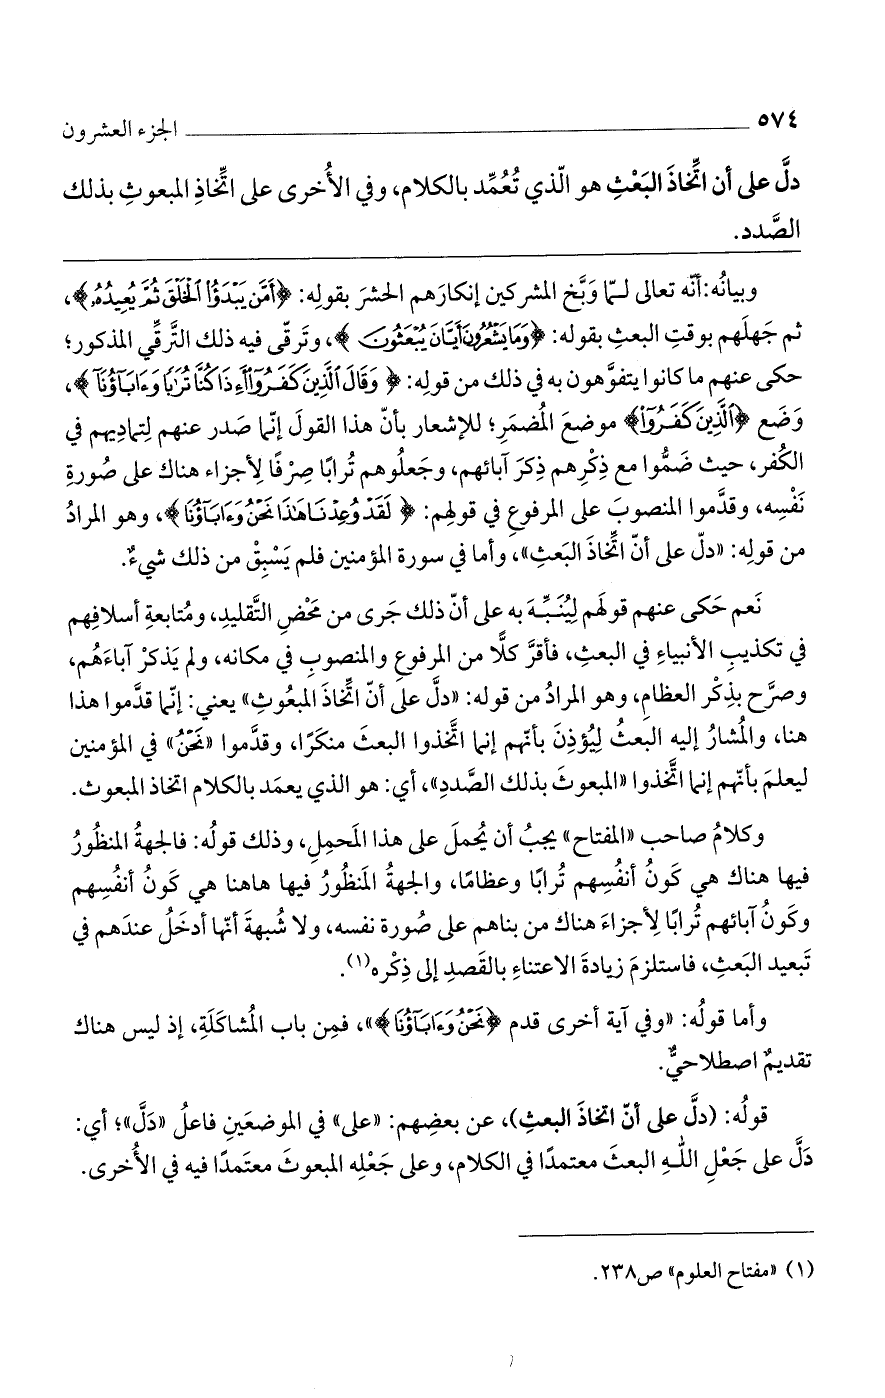 ٥٧٤ الجزء العشرون
دلَّ على أن اتِّخاذَ البَعْثِ هو الّذي تُعُمِّد بالكلام، وفي الأُخرى على اتِّخاذِ المبعوثِ بذلك
الصَّدد.
وبيانُه: أنّه تعالى لـمّا وَبَّخ المشركين إنكارَهم الحشرَ بقولِه: ﴿أَمَّن يَبْدَؤُا۟ ٱلْخَلْقَ ثُمَّ يُعِيدُهُۥ﴾،
ثم جَهلَهم بوقتِ البعثِ بقوله: ﴿وَمَا يَشْعُرُونَ أَيَّانَ يُبْعَثُونَ﴾، وتَرقّى فيه ذلك التَّرقِّي المذكور؛
حكى عنهم ما كانوا يتفوَّهون به في ذلك من قولِه: ﴿وَقَالَ ٱلَّذِينَ كَفَرُوٓا۟ أَءِذَا كُنَّا تُرَٰبًا وَءَابَآؤُنَآ﴾،
وَضَع ﴿ٱلَّذِينَ كَفَرُوٓا۟﴾ موضعَ المُضمَرِ؛ للإشعار بأنّ هذا القولَ إنّما صَدر عنهم لِتماديهم في
الكُفر، حيث ضَمُّوا مع ذِكْرِهم ذِكرَ آبائهم، وجَعلُوهم تُرابًا صِرْفًا لِأجزاء هناك على صُورةِ
نَفْسِه، وقدَّموا المنصوبَ على المرفوعِ في قولِهم: ﴿لَقَدْ وُعِدْنَا هَٰذَا نَحْنُ وَءَابَآؤُنَا﴾، وهو المرادُ
من قولِه: «دلّ على أنّ اتِّخاذَ البَعثِ»، وأما في سورة المؤمنين فلم يَسْبِقْ من ذلك شيءٌ.
نَعم حَكى عنهم قولَهم لِيُنَبِّـهَ به على أنّ ذلك جَرى من مَحْضِ التَّقليدِ، ومُتابعةِ أسلافِهم
في تكذيبِ الأنبياءِ في البعثِ، فأقرَّ كلًّا من المرفوعِ والمنصوبِ في مكانه، ولم يَذكرْ آباءَهُم،
وصرَّح بذِكْر العظامِ، وهو المرادُ من قوله: «دلَّ على أنّ اتِّخاذَ المبعُوثِ» يعني: إنّما قدَّموا هذا
هنا، والمُشارُ إليه البعثُ لِيُؤذِنَ بأنّهم إنما اتَّخذوا البعثَ منكَرًا، وقدَّموا «نَحْنُ» في المؤمنين
ليعلمَ بأنّهم إنما اتَّخذوا «المبعوثَ بذلك الصَّددِ»، أي: هو الذي يعمَد بالكلام اتخاذ المبعوث.
وكلامُ صاحب «المفتاح» يجبُ أن يُحملَ على هذا المَحمِلِ، وذلك قولُه: فالجهةُ المنظُورُ
فيها هناك هي كَونُ أنفُسِهم تُرابًا وعظامًا، والجهةُ المَنظُورُ فيها هاهنا هي كَونُ أنفُسِهم
وكَونُ آبائهم تُرابًا لِأجزاءَ هناك من بناهم على صُورة نفسه، ولا شُبهةَ أنّها أدخَلُ عندَهم في
تَبعيد البَعثِ، فاستلزمَ زيادةَ الاعتناءِ بالقَصدِ إلى ذِكْره(١).
وأما قولُه: «وفي آية أخرى قدم ﴿نَحْنُ وَءَابَآؤُنَا﴾»، فمِن باب المُشاكَلَةِ، إذ ليس هناك
تقديمٌ اصطلاحيٌّ.
قولُه: (دلَّ على أنّ اتخاذَ البعثِ)، عن بعضِهم: «على» في الموضعَينِ فاعلُ «دَلَّ»؛ أي:
دَلَّ على جَعْلِ اللهِ البعثَ معتمدًا في الكلام، وعلى جَعْلِه المبعوثَ معتمَدًا فيه في الأُخرى.
(١) «مفتاح العلوم» ص٢٣٨.